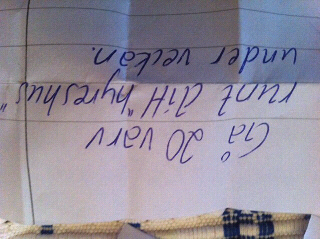 Gå 20 varv
runt ditt "hyreshus"
under veckan.